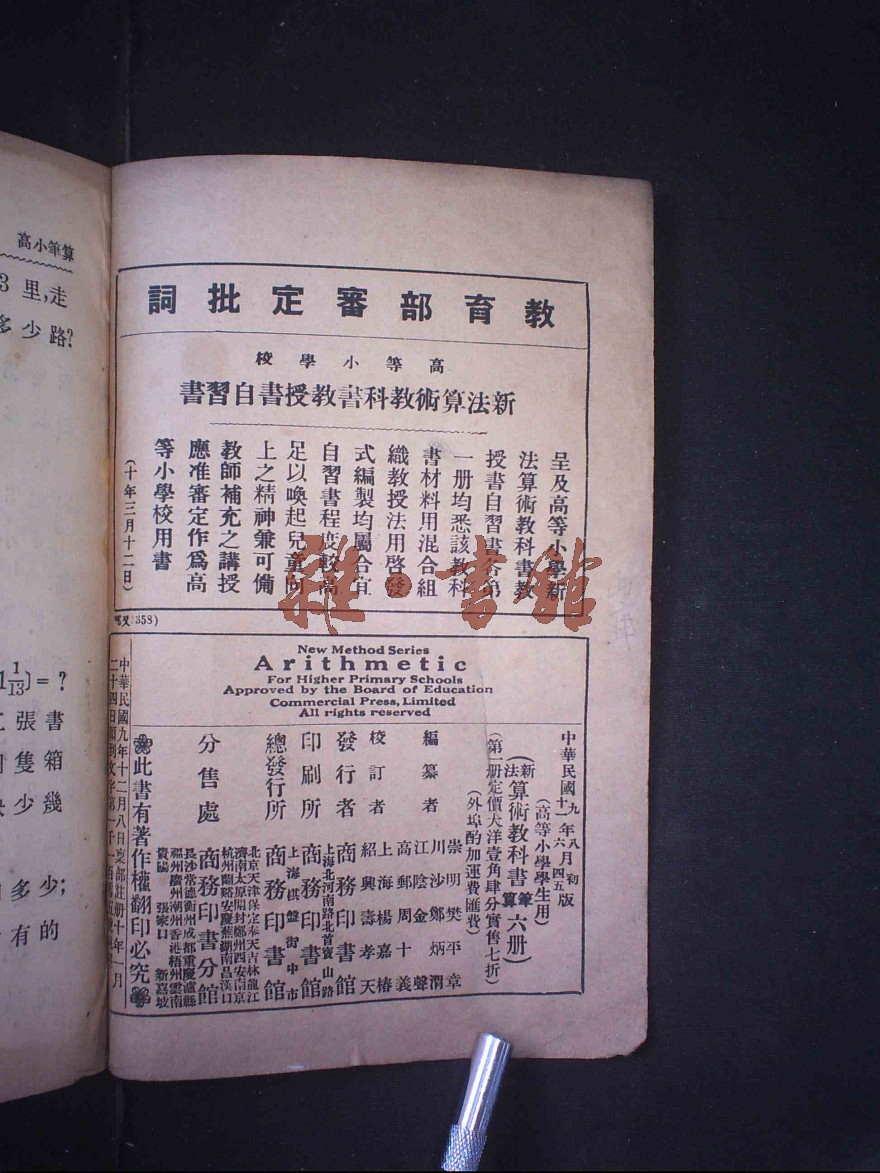 高小筆算
3里,走
多少路?
1 1/13)=?
張書
隻箱
少幾
多少;
有的
教育部審定批詞
高等小學校
新法算術教科書教授書自習書
呈及高等小學新
法算術教科書教
授書自習書各第
一册均悉該教科
書材料用混合組
織教授法用啓發
式編製均屬合宜
自習書程度較高
足以喚起兒童向
上之精神兼可備
教師補充之講授
應准審定作爲高
等小學校用書
(十年三月十二日)
雜·書館
New Method Series
Arithmetic
For Higher Primary Schools
Approved by the Board of Education
Commercial Press, Limited
All rights reserved
(高等小學學生用)
(新法算術教科書筆算六册)
(第一册定價大洋壹角肆分實售七折)
(外埠酌加運費匯費)
編纂者
崇明樊平章
川沙鄭炳渭
江陰金聲
校訂者
高郵周十義
上海楊嘉椿
紹興壽孝天
發行者
商務印書館
印刷所
上海北河南路北首寶山路
商務印書館
總發行所
上海棋盤街中市
商務印書館
分售處
商務印書分館
北京天津保定奉天吉林龍江
濟南太原開封鄭州西安南京
杭州蘭谿安慶蕪湖南昌漢口
長沙常德衡州成都重慶瀘縣
福州廣州潮州香港梧州雲南
貴陽 張家口 新嘉坡
此書有著作權翻印必究
中華民國九年十二月八日稟部註册十年一月